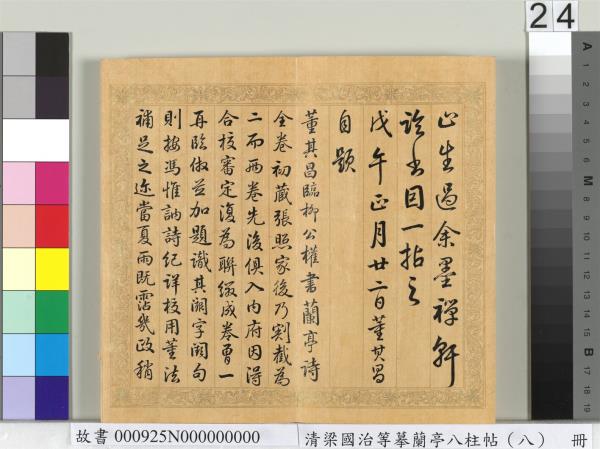 24
止生過余墨禪軒
詒書因一拈之
戊午正月廿二日董其昌
自題
董其昌臨柳公權書蘭亭詩
全卷初藏張照家後乃割截為
二而兩卷先後俱入內府因得
合校審定復為聯綴成卷曾一
再臨倣並加題識其闕字闕句
則按馮惟訥詩紀詳校用董法
補足之迩當夏雨既霑幾政稍
A 1 2 3 4 5 6 M 8 9 10 11 12 13 14 15 B 17 18 19
故書 000925N000000000
清梁國治等摹蘭亭八柱帖（八） 冊